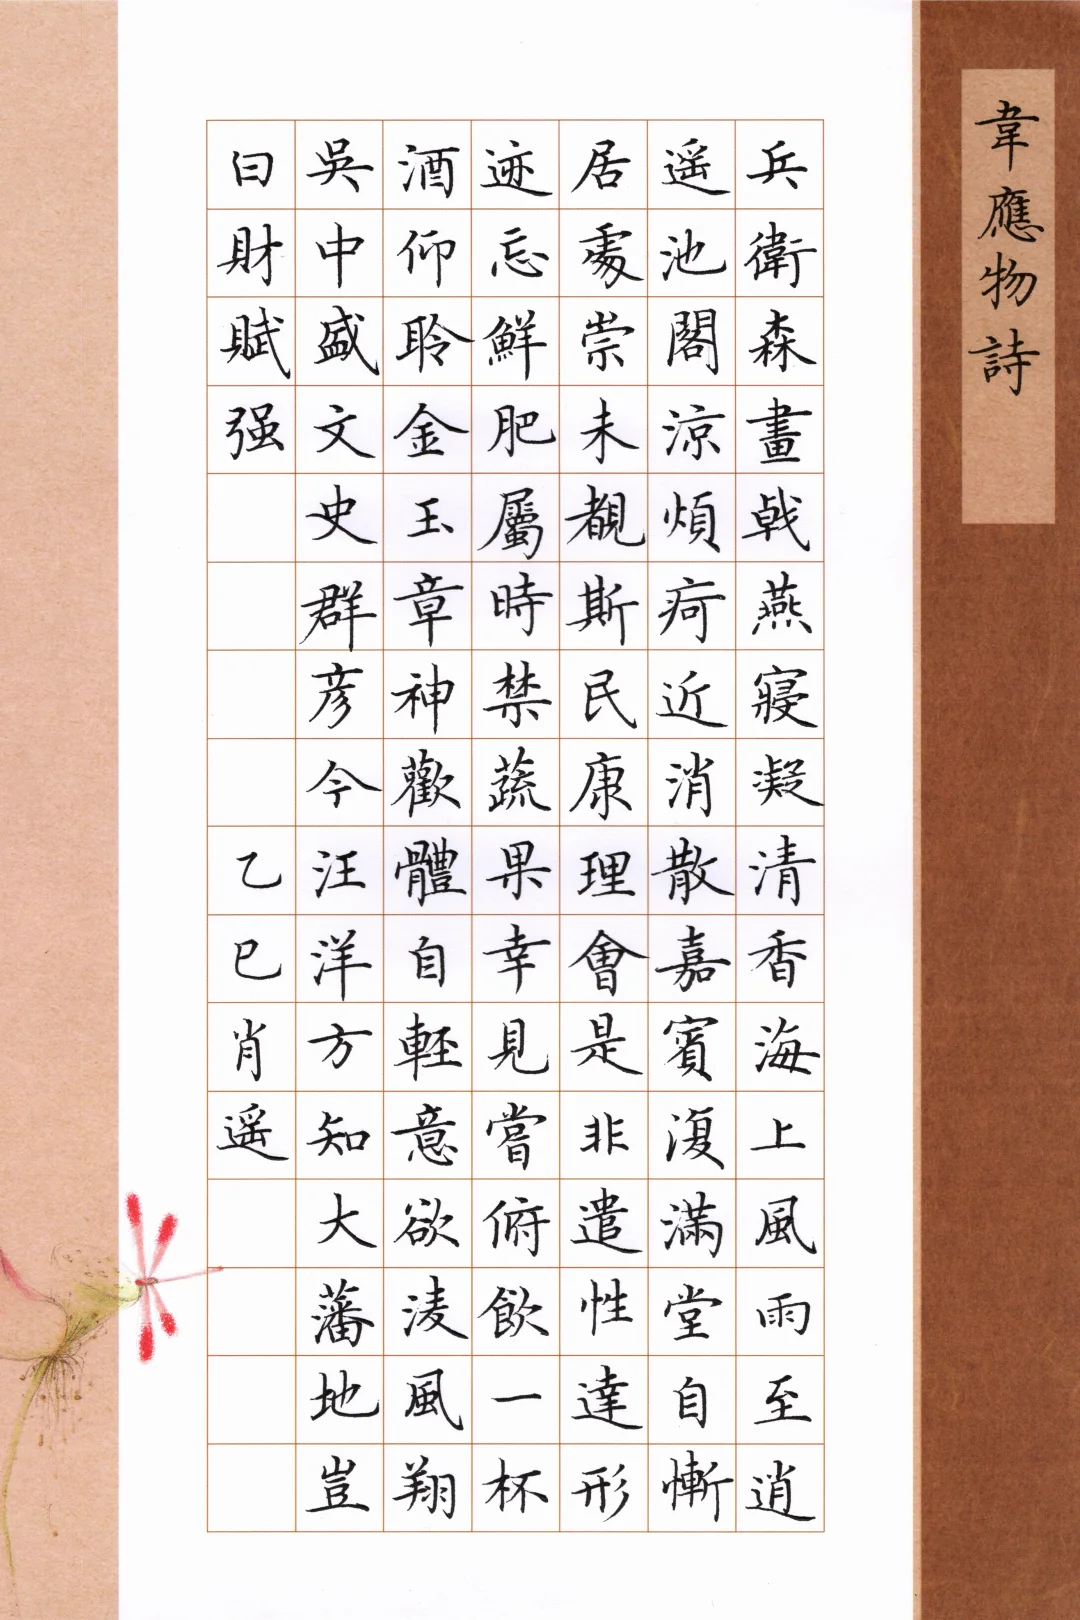 韋應物詩
兵衛森畫戟燕寢凝清香海上風雨至逍
遥池閣涼煩疴近消散嘉賓復滿堂自慚
居處崇未覩斯民康理會是非遣性達形
迹忘鮮肥屬時禁蔬果幸見嘗俯飲一杯
酒仰聆金玉章神歡體自輕意欲淩風翔
吳中盛文史群彦今汪洋方知大藩地豈
曰財賦强 乙巳肖遥